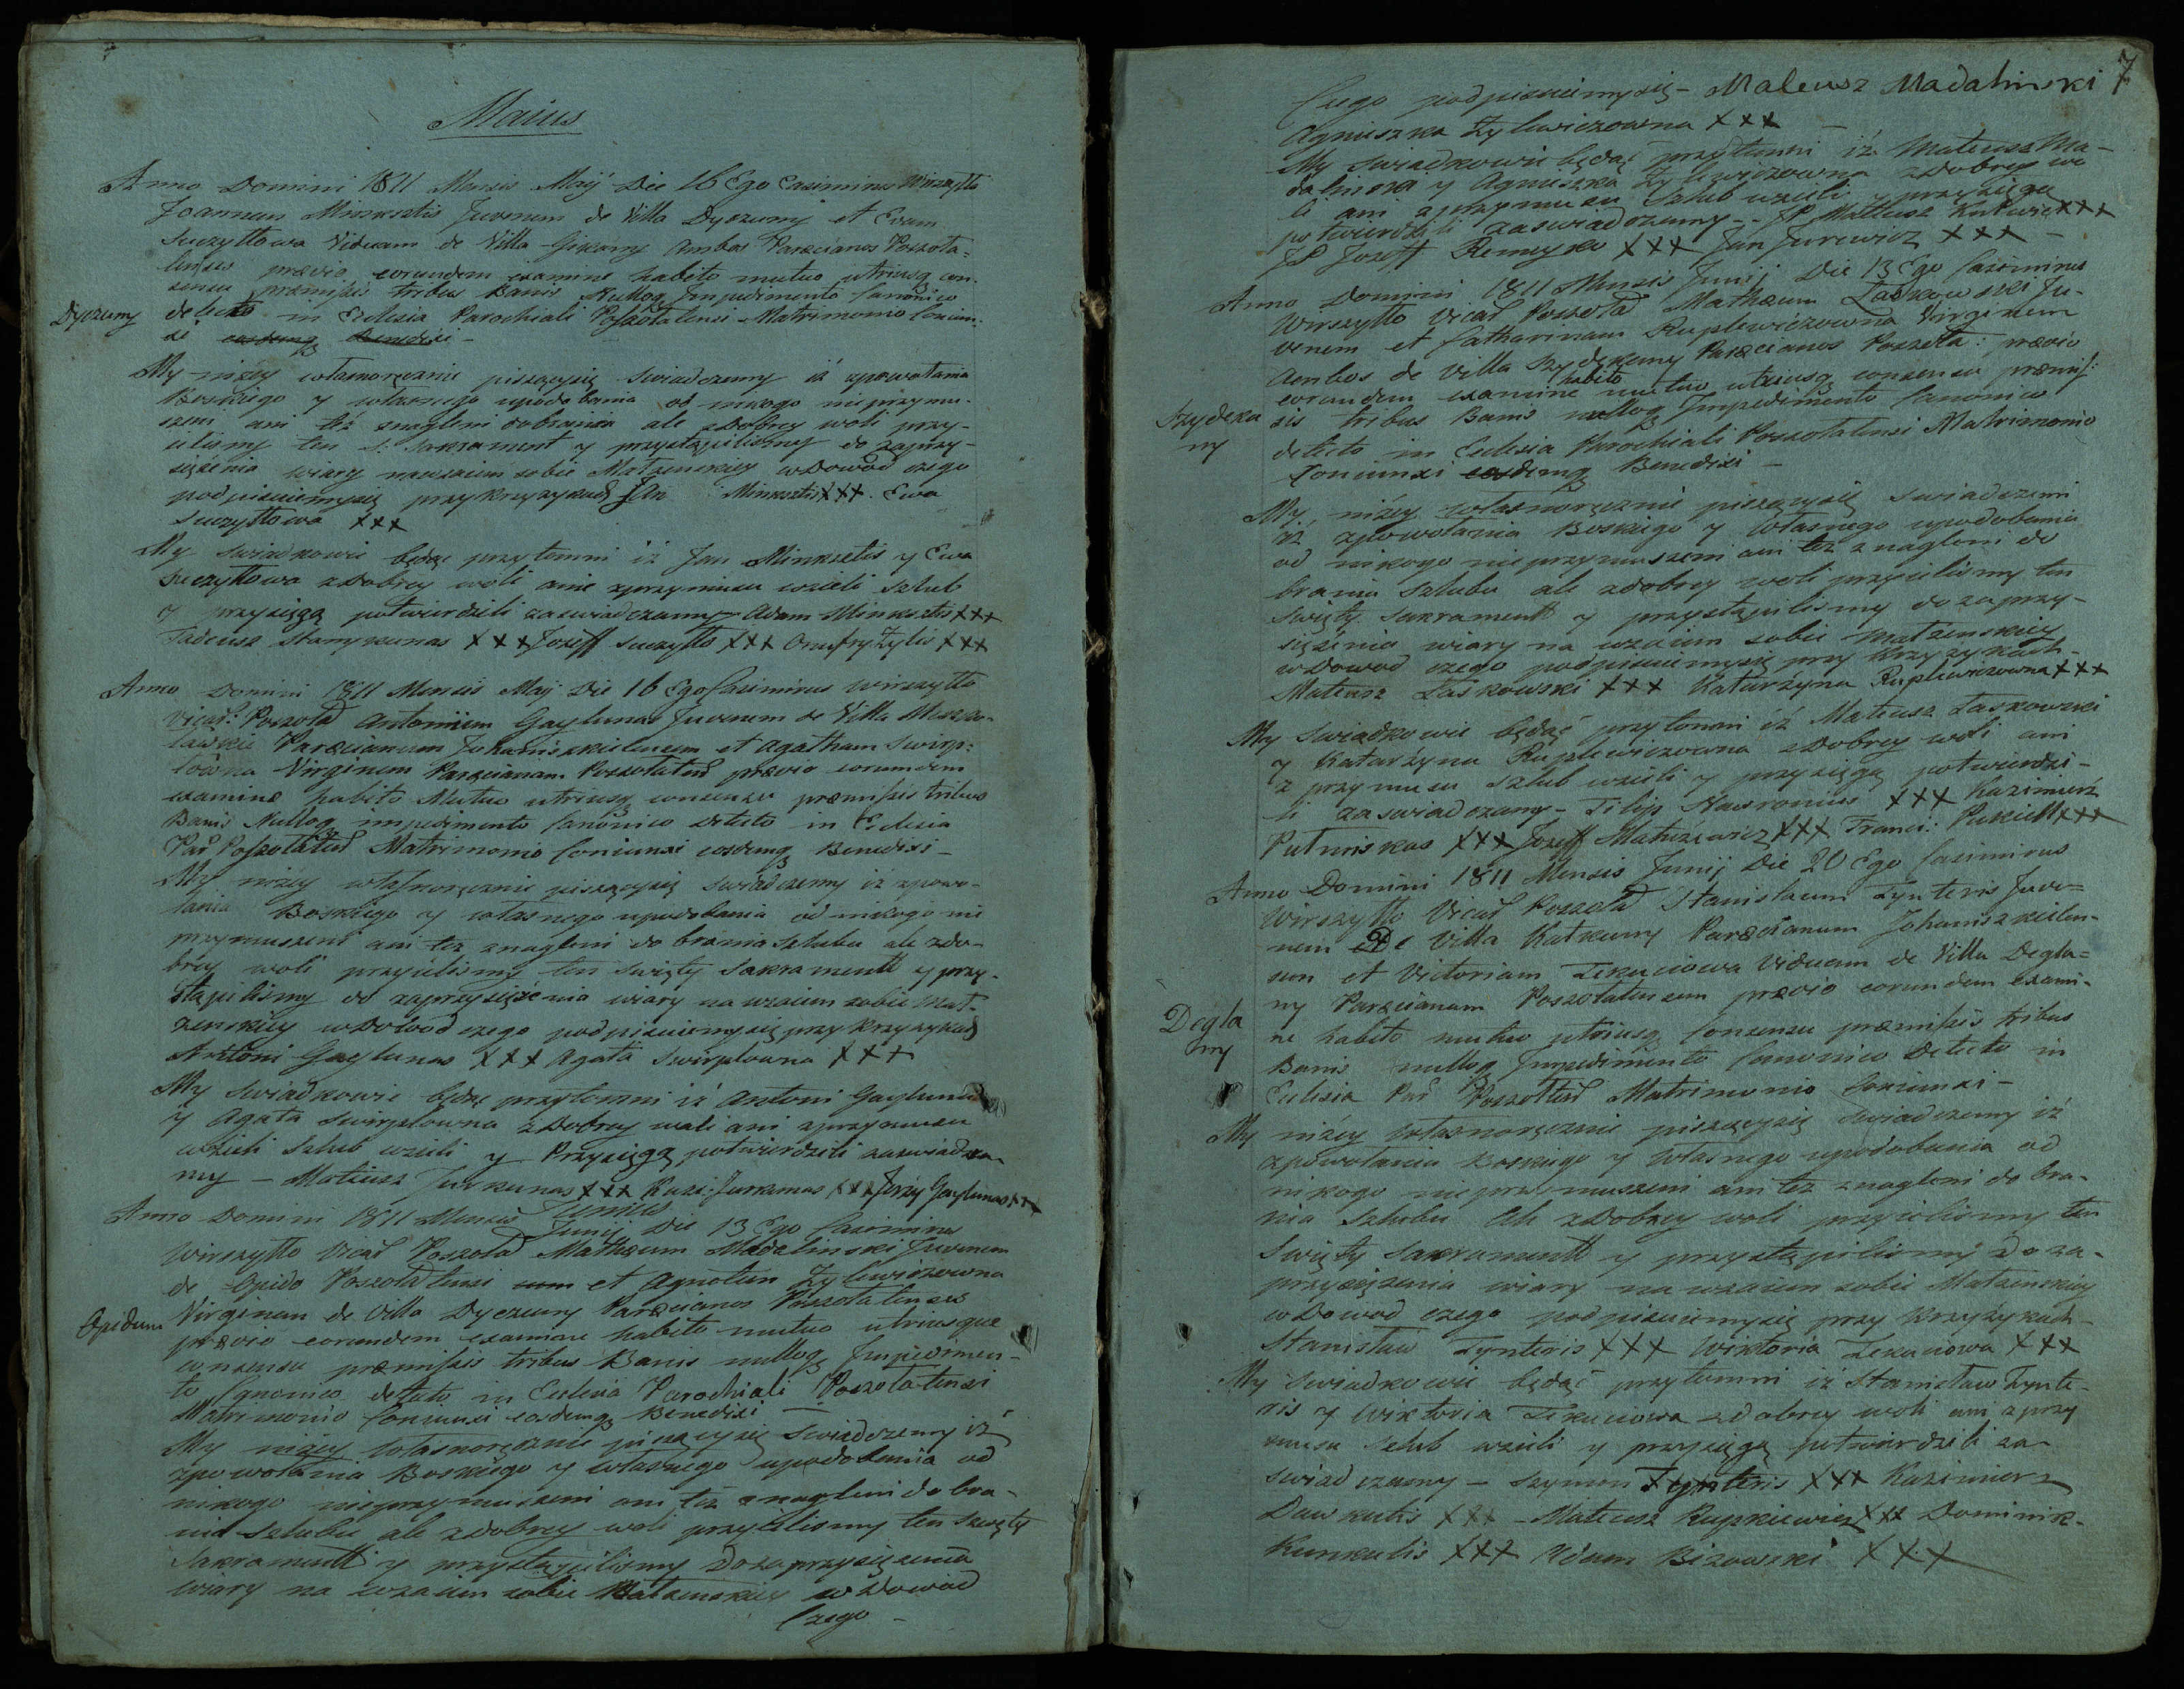 Maius
Anno Domini 1811 Mensis Maij Die 16 Ego Casimirus Wirszytto
Joannem Minksztis Juvenem de Villa Dyrzuny et Evam
Suczyttowa Viduam de Villa Girany Ambos Paræcianos Poszola-
tenses prævio eorundem examine habito mutuo utriusq con-
sensu præmissis tribus Banis Nulloq Impedimento Canonico
Dyrzuny
detecto in Eclesia Parochiali Poszolatensi Matrimonio Coniun-
xi eosdemq Benedixi -
My niżey własnoręcznie piszącysię Swiadczemy iż zpowołania
Boskiego y własnego upodobania od nikogo nieprzymu-
szeni ani też znagleni dobrania ale zdobrey woli przy-
ieliśmy ten S: Sakrament y przystąpiliśmy do zaprzy-
siężenia wiary nawzaiem sobie Małżenskiey wdowod czego
podpisuiemysię przykrzyzykach Jan Minksztis XXX. Ewa
Suczyttowa XXX
My swiadkowie będąc przytomni iż Jan Minksztis y Ewa
Suczyttowa zdobrey woli anie zprzymusu wzieli szlub
y przysięgą potwierdzili zaswiadczamy Adam Minksztis XXX
Tadeusz Skamykunas XXX Jozeff Suczytto XXX Onufry Zylis XXX
Anno Domini 1811 Mensis Maij Die 16 Ego Casimirus Wirszytto
Vicař: Poszolař Antonium Gaylunas Juvenem de Villa Meszko-
lawkie Paræcianum Johaniszkielensem et Agatham Swirp-
lowna Virginem Paræcianam Poszolatens prævio eorumdem
examine habito Mutuo utriusq consensu præmissis tribus
Banis Nulloq impedimento Canonico Detecto in Eclesia
Par Poszolatens Matrimonio Coniunxi eosdemq Benedixi -
My niżey własnoręcznie piszącysię swiadczemy iż zpowo-
łania Boskiego y własnego upodobania od nikogo nie
przymuszeni ani też znagleni do brania szlubu ale zdo-
brey woli przyieliśmy ten święty Sakramentt y przy-
stąpiliśmy do zaprzysiężenia wiary na wzaiem sobie Mał-
żenskiey wdowod czego podpisuiemysię przy krzyzykach
Antoni Gaylunas XXX Agata Swirplowna XXX
My swiadkowie będąc przytomni iż Antoni Gaylunas
y Agata Swirplowna zdobrey woli ani zprzymusu
wzieli szlub wzieli y Przysięgą potwierdzili zaswiadcza-
my - Mateusz Jurkunas XXX Kazi: Jurkunas XXX Jerży Gaylunas XXX
Junius
Anno Domini 1811 Mensis Junij Die 13 Ego Casimirus
Wirszytto Vicař Poszolař Mathæum Madalinski Juvenem
de Opido Poszolatensi cum et Agnetem Zylewiczowna
Opidum
Virginem de Villa Dyrzuny Paræcianos Poszolatenses
prævio eorundem examine habito mutuo utriusque
consensu præmissis tribus Banis nulloq Impedimen-
to Canonico detecto in Eclesia Parochiali Poszolatensi
Matrimonio Coniunxi eosdemq Benedixi -
My niżey własnoręcznie piszącysię Swiadczemy iż
zpowołania Boskiego y własnego upodobania od
nikogo nieprzymuszeni ani też znagleni do bra-
nia szlubu ale zdobrey woli przyieliśmy ten Święty
Sakramentt y przystąpiliśmy Do zaprzysięzenia
wiary na wzaiem sobie Małżenskiey w dowod
Czego -
7
Czego podpisuiemysię - Mateusz Madalinski
Agnieszka Zylewiczowna XXX
My Swiadkowie będąć przytomni iż Mateusz Ma-
dalinski y Agnieszka Zylewiczowna zdobrey wo
li ani zprzymusu szlub wzieli y przysięgą
potwierdzili zaswiadczamy - JP Mateusz Kutwic XXX
JP Jozeff Remeyko XXX Jan Jurewicz XXX -
Anno Domini 1811 Mensis Junij Die 13 Ego Casimirus
Wirszytto Vicař Poszolař Mathæum Laskowski Ju-
venem et Catharinam Ruplewiczowna Virginem
Ambos de Villa Szydekany Paræcianos Poszola: prævio
eorundem examine habito mutuo utriusq consensu præmiſ:
Szydeka
ny
sis tribus Banis nulloq Impedimento Canonico
detecto in Eclesia Parochiali Poszolatensi Matrimonio
Coniunxi eosdemq Benedixi -
My niżey własnoręcznie piszącysię Swiadczemi
iż zpowołania Boskiego y Własnego upodobania
od nikogo nieprzymuszeni ani też znagleni do
brania szlubu ale zdobrey woli przyieliśmy ten
święty Sakramentt y przystąpiliśmy do zaprzy-
siężenia wiary na wzaiem sobie Małżenskiey
wdowod czego podpisuiemysię przy krzyzykach -
Mateusz Laskowski XXX Katarżyna Ruplewiczowna XXX
My Swiadkowie będąć przytomni iż Mateusz Laskowski
y Katarżyna Ruplewiczowna zdobrey woli ani
z przymusu szlub wzieli y przysięgą potwierdzi-
li zaswiadczamy - Filip Nawronius XXX Kazimierż
Putwiskas XXX Jozeff Matuzewicz XXX Franci: Puszielł XXX
Anno Domini 1811 Mensis Junij Die 20 Ego Casimirus
Wirszytto Vicař Poszolař Stanislaum Zynteris Juve=
nem De Villa Katkuny Paræcianum Johaniszkielen-
sem et Victoriam Zekuciowa Viduam de Villa Degla=
ny Paræcianam Poszolatensem prævio eorundem exami-
Degla
ny
ne habito mutuo utriusq Consensu præmissis tribus
Banis nulloq Impedimento Canonico Detecto in
Eclesia Par Poszolteř Matrimonio Coniunxi -
My niżey własnoręcznie piszącysię Swiadczemy iż
zpowołania Boskiego y Własnego upodobania od
nikogo nieprzymuszeni ani też znagleni do bra-
nia szlubu ale zdobrey woli przyieliśmy ten
Święty Sakramentt y przystąpiliśmy Do za-
przysiężenia wiary na wzaiem sobie Małżenskiey
wdowod czego podpisuiemysię przy krzyżykach -
Stanisław Zynteris XXX Wiktoria Zekuciowa XXX
My swiadkowie będąć przytomni iż Stanisław Zynte-
ris y Wiktoria Zekuciowa zdobrey woli ani zprzy
musu szlub wzieli y przysięgą potwierdzili za-
swiadczamy - Szymon Zynteris XXX Kazimierz
Dawkutis XXX - Mateusz Rupkiewicz XXX Dominik-
Kunkulis XXX Adam Bizowski XXX